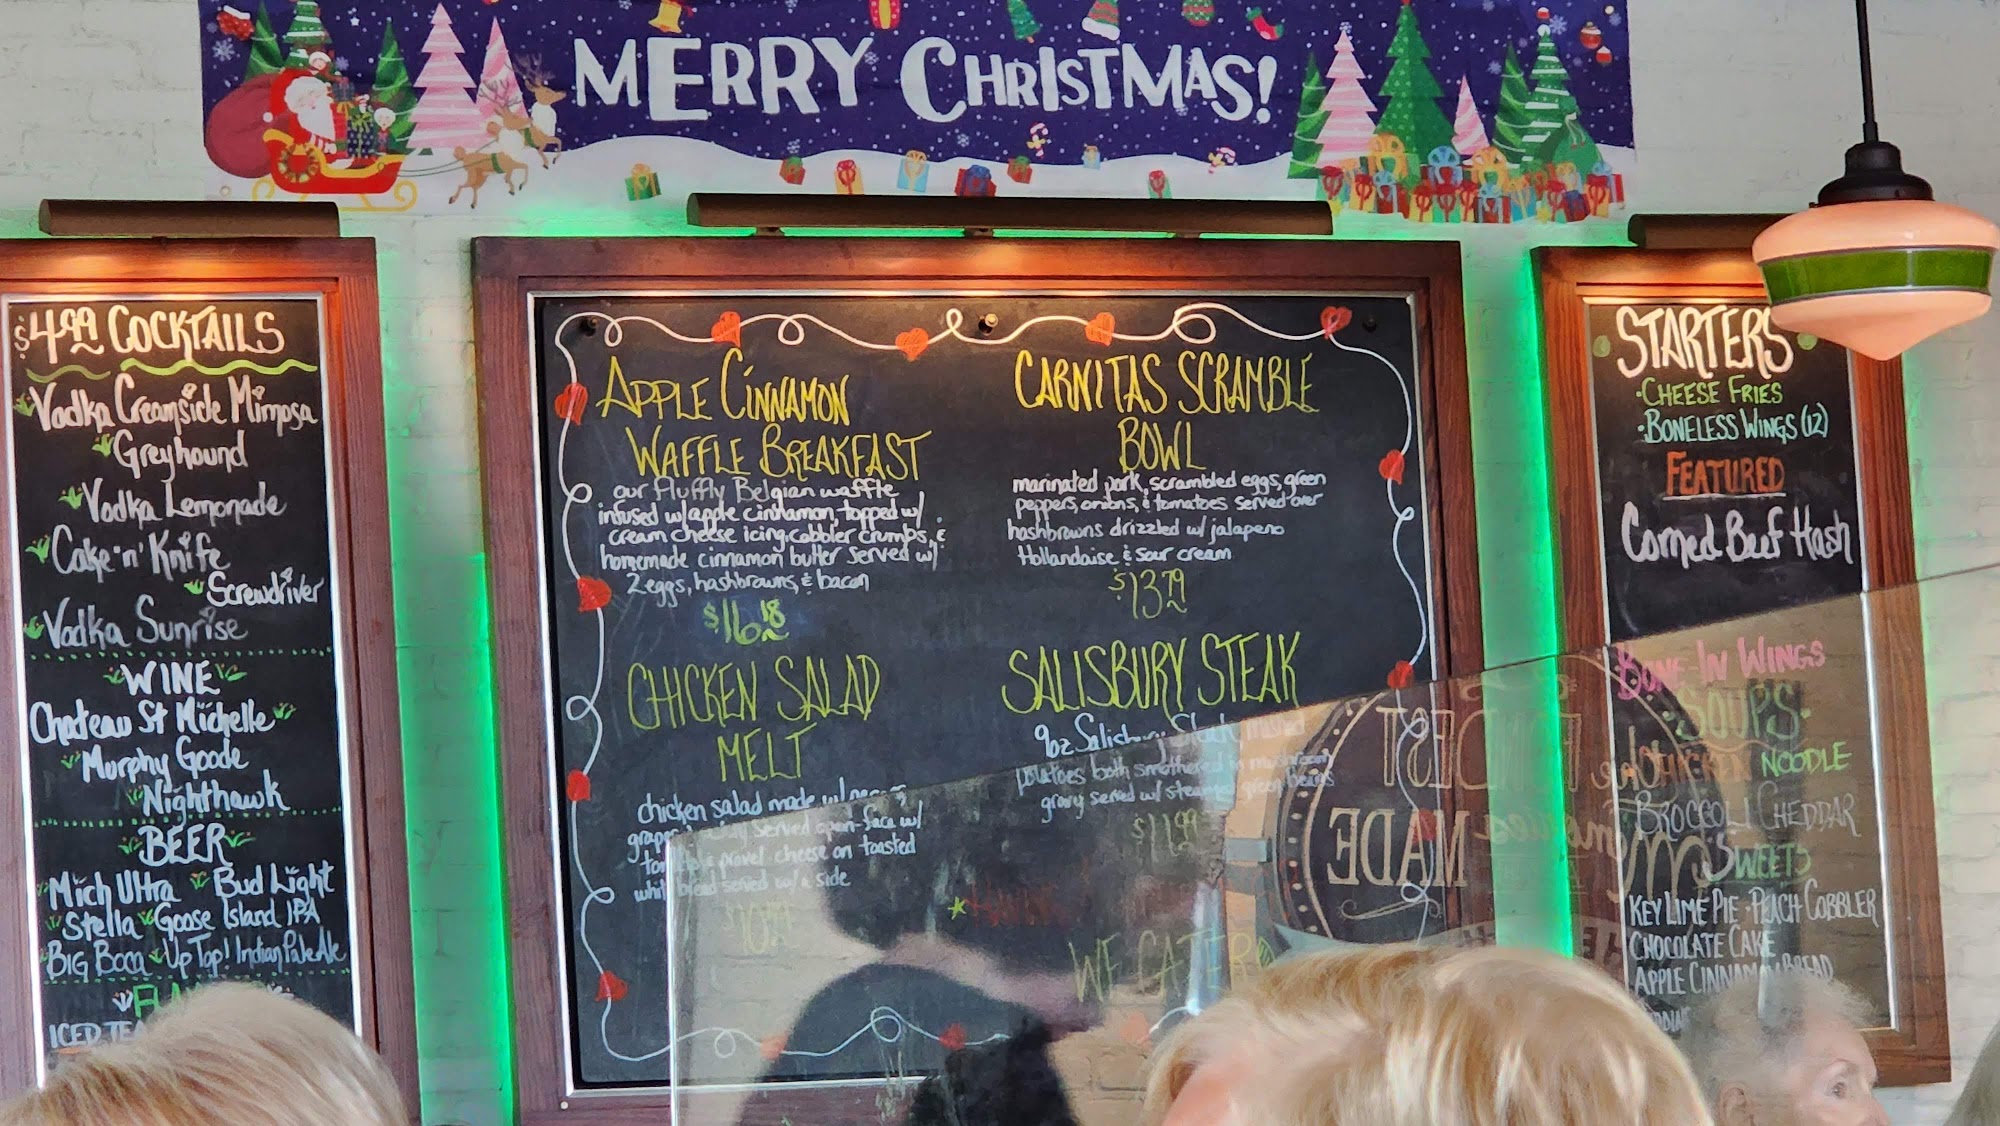 MERRY CHRISTMAS!
$4.99 COCKTAILS
Vodka Creamsicle Mimosa
Greyhound
Vodka Lemonade
Cake 'n' Knife
Screwdriver
Vodka Sunrise
WINE
Chateau St Michelle
Murphy Goode
Nighthawk
BEER
Mich Ultra Bud Light
Stella Goose Island IPA
BIG Boca Up Top! Indian Pale Ale
ICED TEA
APPLE CINNAMON
WAFFLE BREAKFAST
our fluffly Belgian waffle
infused w/apple cinnamon, topped w/
cream cheese icing, cobbler crumbs, &
homemade cinnamon butter served w/
2 eggs, hashbrowns, & bacon
$16.18
CHICKEN SALAD
MELT
chicken salad made w/
served open-face w/
& provel cheese on toasted
bread served w/ a side
CARNITAS SCRAMBLE
BOWL
marinated pork, scrambled eggs, green
peppers, onions, & tomatoes served over
hashbrowns drizzled w/ jalapeno
Hollandaise & sour cream
$13.79
SALISBURY STEAK
9oz Salisbury Steak
potatoes both smothered in mushroom
gravy served w/ steamed green beans
$11.99
WE CATER
FINDEST
MADE
STARTERS
·CHEESE FRIES
·BONELESS WINGS (12)
FEATURED
Corned Beef Hash
BONE-IN WINGS
·SOUPS·
CHICKEN NOODLE
BROCCOLI CHEDDAR
SWEETS
KEY LIME PIE · PEACH COBBLER
CHOCOLATE CAKE
APPLE CINNAMON BREAD